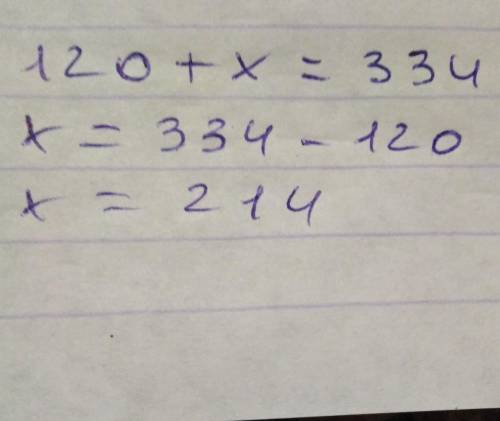 120 + x = 334
x = 334 - 120
x = 214